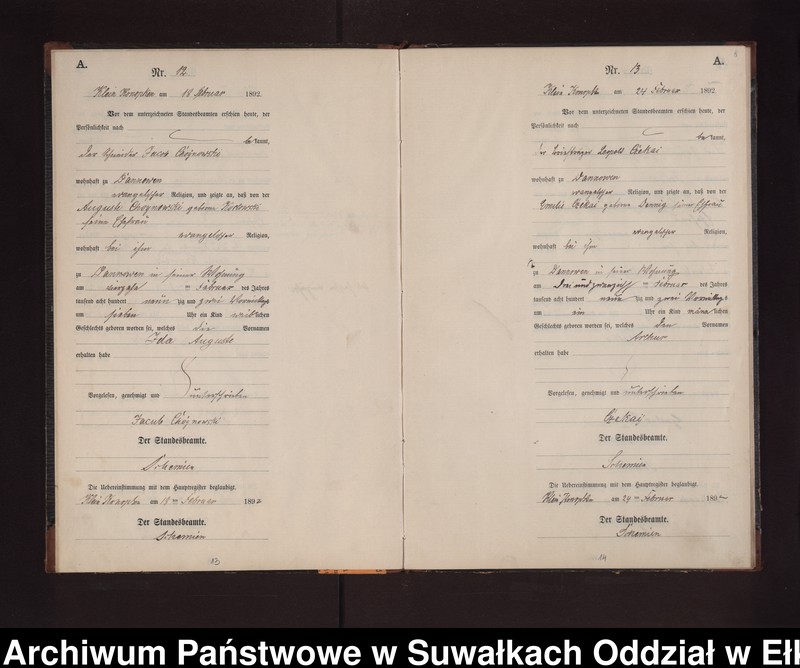 A.
Nr. 12
Klein Konopken am 18 Februar 1892
Vor dem unterzeichneten Standesbeamten erschien heute, der
Persönlichkeit nach
bekannt,
der Jacob Chojnowski
wohnhaft zu Dannowen
evangelischer Religion, und zeigte an, daß von der
Auguste Chojnowski geborne
seine Ehefrau
evangelischer Religion,
wohnhaft bei ihm
zu Dannowen in seiner Wohnung
am vierzehn ten Februar des Jahres
tausend acht hundert neun zig und zwei Vormittags
um sieben Uhr ein Kind weiblichen
Geschlechts geboren worden sei, welches die Vornamen
Ida Auguste
erhalten habe
Vorgelesen, genehmigt und unterschrieben
Jacob Chojnowski
Der Standesbeamte.
Schemien
Die Uebereinstimmung mit dem Hauptregister beglaubigt.
Klein Konopken am 18 ten Februar 1892
Der Standesbeamte.
Schemien
A.
Nr. 13
Klein Konopken am 24 Februar 1892
Vor dem unterzeichneten Standesbeamten erschien heute, der
Persönlichkeit nach
bekannt,
der Briefträger Leopold Czekai
wohnhaft zu Dannowen
evangelischer Religion, und zeigte an, daß von der
Emilie Czekai geborne seine Ehefrau
evangelischer Religion,
wohnhaft bei ihm
zu Dannowen in seiner Wohnung
am Drei und zwanzigsten Februar des Jahres
tausend acht hundert neun zig und zwei Vormittags
um ein Uhr ein Kind männlichen
Geschlechts geboren worden sei, welches den Vornamen
Arthur
erhalten habe
Vorgelesen, genehmigt und unterschrieben
Czekai
Der Standesbeamte.
Schemien
Die Uebereinstimmung mit dem Hauptregister beglaubigt.
Klein Konopken am 24 ten Februar 1892
Der Standesbeamte.
Schemien
14
Archiwum Państwowe w Suwałkach Oddział w Eł